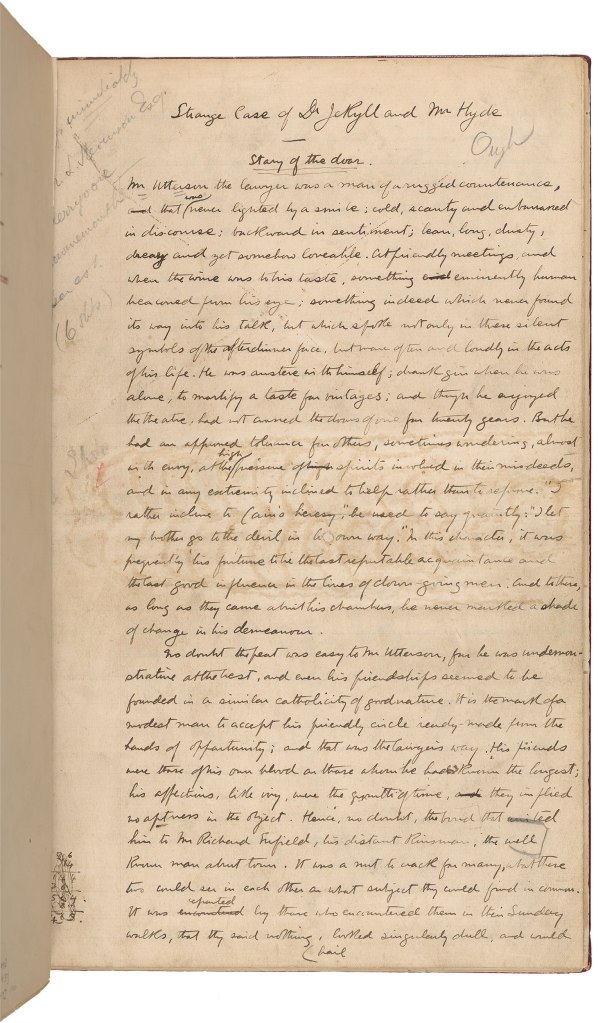 Strange Case of Dr Jekyll and Mr Hyde
Ough
Story of the door.
Mr Utterson the lawyer was a man of a rugged countenance,
and that was never lighted by a smile; cold, scanty and embarrassed
in discourse; backward in sentiment; lean, long, dusty,
dreary and yet somehow loveable. At friendly meetings, and
when the wine was to his taste, something eminently human
beaconed from his eye; something indeed which never found
its way into his talk, but which spoke not only in these silent
symbols of the afterdinner face, but more often and loudly in the acts
of his life. He was austere with himself; drank gin when he was
alone, to mortify a taste for vintages; and though he enjoyed
the theatre, had not crossed the doors of one for twenty years. But he
had an approved tolerance for others, sometimes wondering, almost
with envy, at the high pressure of high spirits involved in their misdeeds,
and in any extremity inclined to help rather than to reprove. "I
rather incline to Cain's heresy," he used to say quaintly: "I let
my brother go to the devil in his own way." In this character, it was
frequently his fortune to be the last reputable acquaintance and
the last good influence in the lives of down-going men. And to these,
as long as they came about his chambers, he never marked a shade
of change in his demeanour.
No doubt the feat was easy to Mr Utterson, for he was undemon-
strative at the best, and even his friendships seemed to be
founded in a similar catholicity of good nature. It is the mark of a
modest man to accept his friendly circle ready-made from the
hands of opportunity; and that was the lawyer's way. His friends
were those of his own blood or those whom he had known the longest;
his affections, like ivy, were the growth of time, and they implied
no aptness in the object. Hence, no doubt, the bond that united
him to Mr Richard Enfield, his distant kinsman, the well
known man about town. It was a nut to crack for many, what these
two could see in each other or what subject they could find in common.
It was reported by those who encountered them in their Sunday
walks, that they said nothing, looked singularly dull, and would
hail